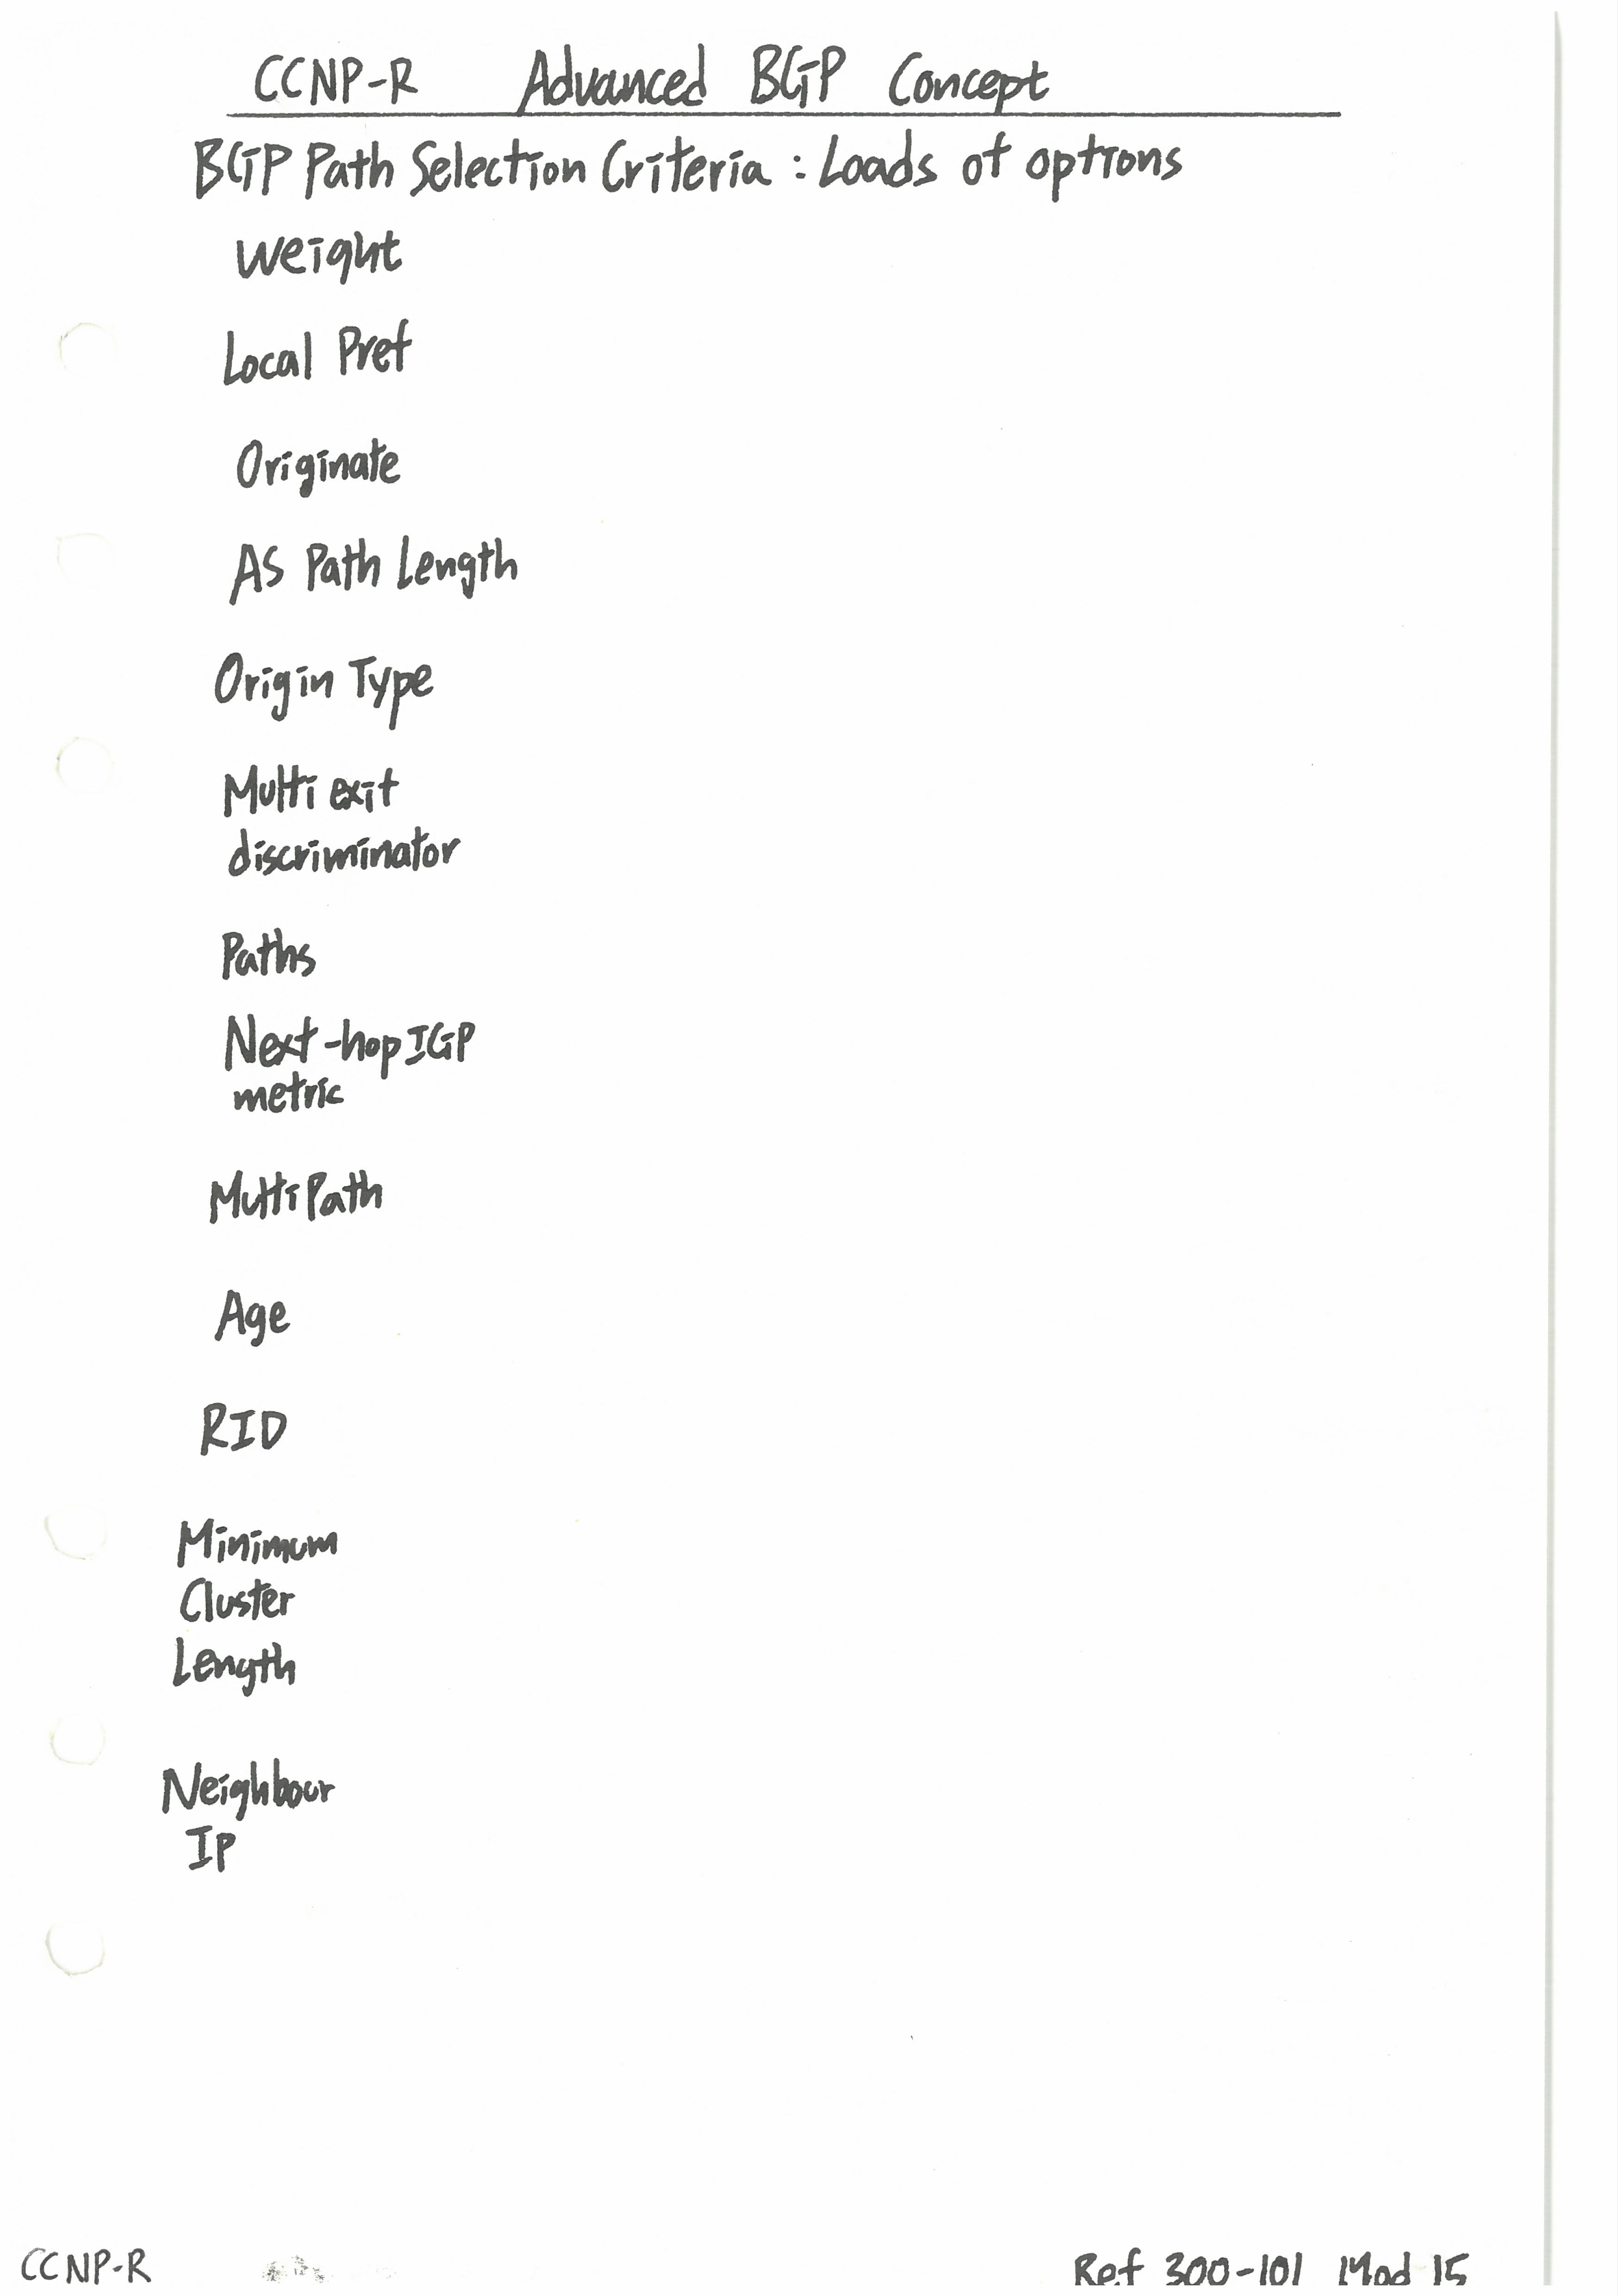 CCNP-R Advanced BGP Concept
BGP Path Selection Criteria : Loads of options
Weight
Local Pref
Originate
AS Path Length
Origin Type
Multi exit
discriminator
Paths
Next-hop IGP
metric
MultiPath
Age
RID
Minimum
Cluster
Length
Neighbour
IP
CCNP-R Ref 300-101 Mod 15